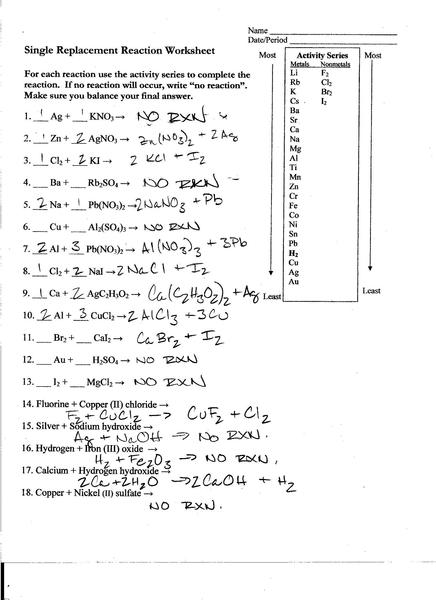 Name
Date/Period
Single Replacement Reaction Worksheet
Most Activity Series Most
Metals Nonmetals
For each reaction use the activity series to complete the
reaction. If no reaction will occur, write “no reaction”.
Make sure you balance your final answer.
Li F₂
Rb Cl₂
K Br₂
Cs I₂
Ba
Sr
Ca
Na
Mg
Al
Ti
Mn
Zn
Cr
Fe
Co
Ni
Sn
Pb
H₂
Cu
Ag
Au
Least Least
1. 1 Ag + 1 KNO₃ → NO RXN
2. 1 Zn + 2 AgNO₃ → Zn(NO₃)₂ + 2Ag
3. 1 Cl₂ + 2 KI → 2 KCl + I₂
4. Ba + Rb₂SO₄ → NO RXN
5. 2 Na + 1 Pb(NO₃)₂ → 2NaNO₃ + Pb
6. Cu + Al₂(SO₄)₃ → NO RXN
7. 2 Al + 3 Pb(NO₃)₂ → Al(NO₃)₃ + 3Pb
8. 1 Cl₂ + 2 NaI → 2NaCl + I₂
9. 1 Ca + 2 AgC₂H₃O₂ → Ca(C₂H₃O₂)₂ + Ag
10. 2 Al + 3 CuCl₂ → 2AlCl₃ + 3Cu
11. Br₂ + CaI₂ → CaBr₂ + I₂
12. Au + H₂SO₄ → NO RXN
13. I₂ + MgCl₂ → NO RXN
14. Fluorine + Copper (II) chloride →
F₂ + CuCl₂ → CuF₂ + Cl₂
15. Silver + Sodium hydroxide →
Ag + NaOH → No RXN.
16. Hydrogen + Iron (III) oxide →
H₂ + Fe₂O₃ → NO RXN.
17. Calcium + Hydrogen hydroxide →
2Ca + 2H₂O → 2CaOH + H₂
18. Copper + Nickel (II) sulfate →
NO RXN.